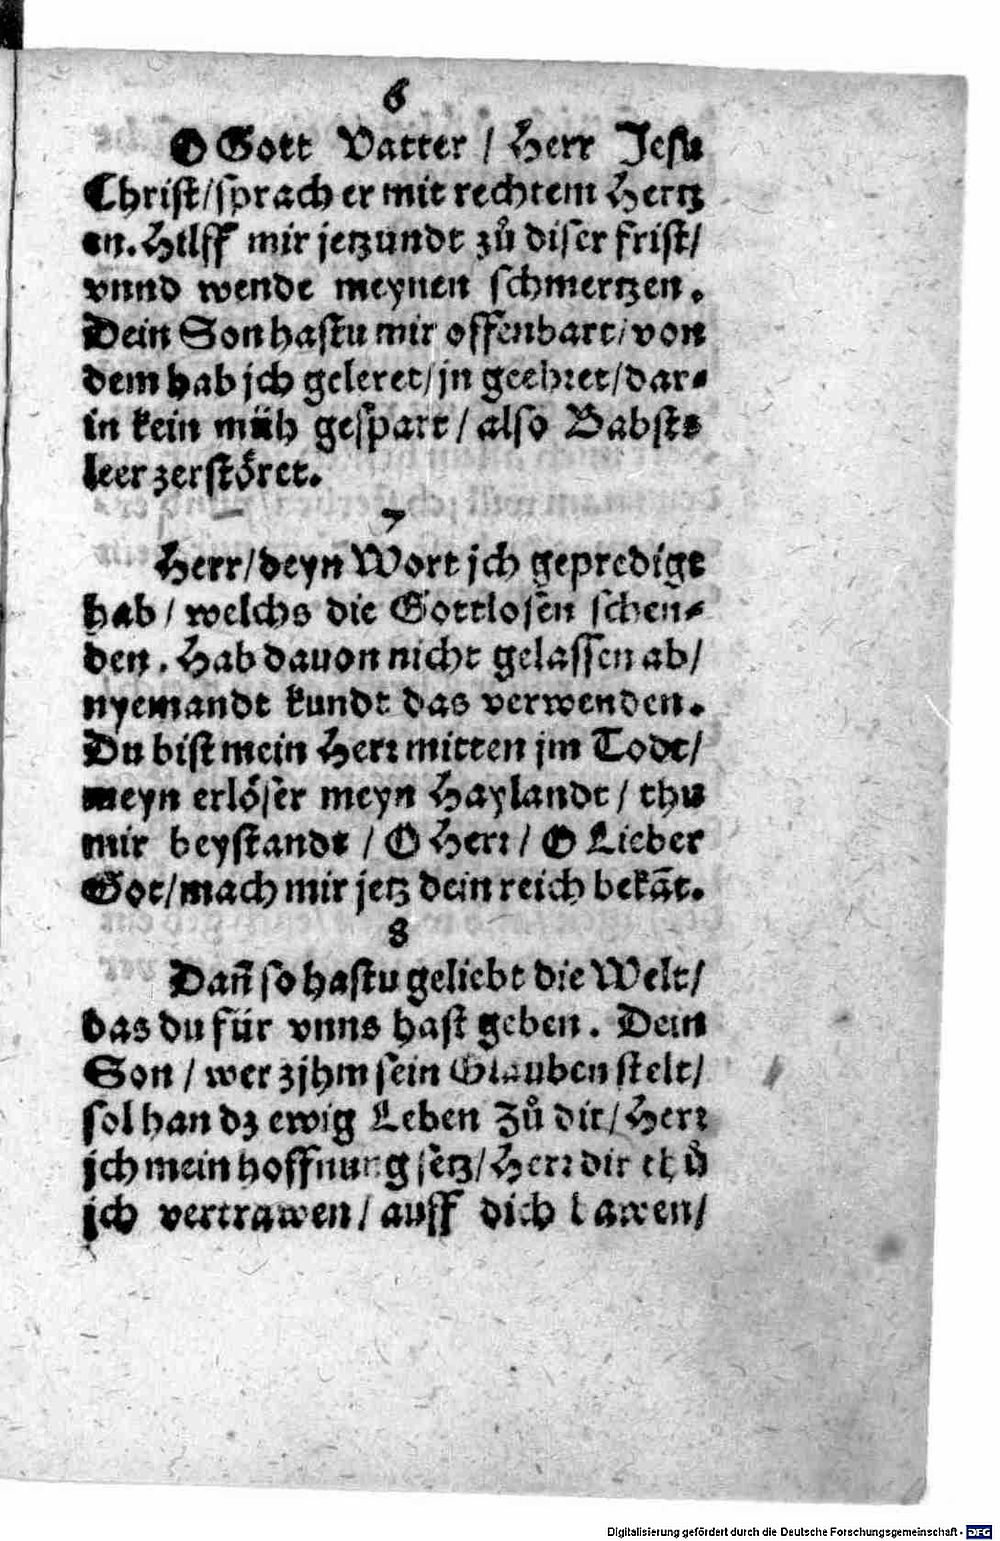 6
O Gott Vatter / Herr Jesu
Christ/sprach er mit rechtem Hertz
en. Hilff mir jetzundt zů diser frist/
vnnd wende meynen schmertzen.
Dein Son hastu mir offenbart/von
dem hab jch geleret/jn geehret/dar⸗
in kein müh gespart / also Babsts
leer zerstöret.
7
Herr/deyn Wort jch gepredigt
hab / welchs die Gottlosen schen⸗
den. Hab dauon nicht gelassen ab/
nyemandt kundt das verwenden.
Du bist mein Herr mitten jm Todt/
meyn erlöser meyn Haylandt / thu
mir beystandt / O Herr / O Lieber
Got/mach mir jetz dein reich bekāt.
8
Dañ so hastu geliebt die Welt/
das du für vnns hast geben. Dein
Son / wer zjhm sein Glauben stelt/
sol han dz ewig Leben Zů dir/ Herr
jch mein hoffnung setz/ Herr dir thů
jch vertrawen/ auff dich bawen/
Digitalisierung gefördert durch die Deutsche Forschungsgemeinschaft - DFG